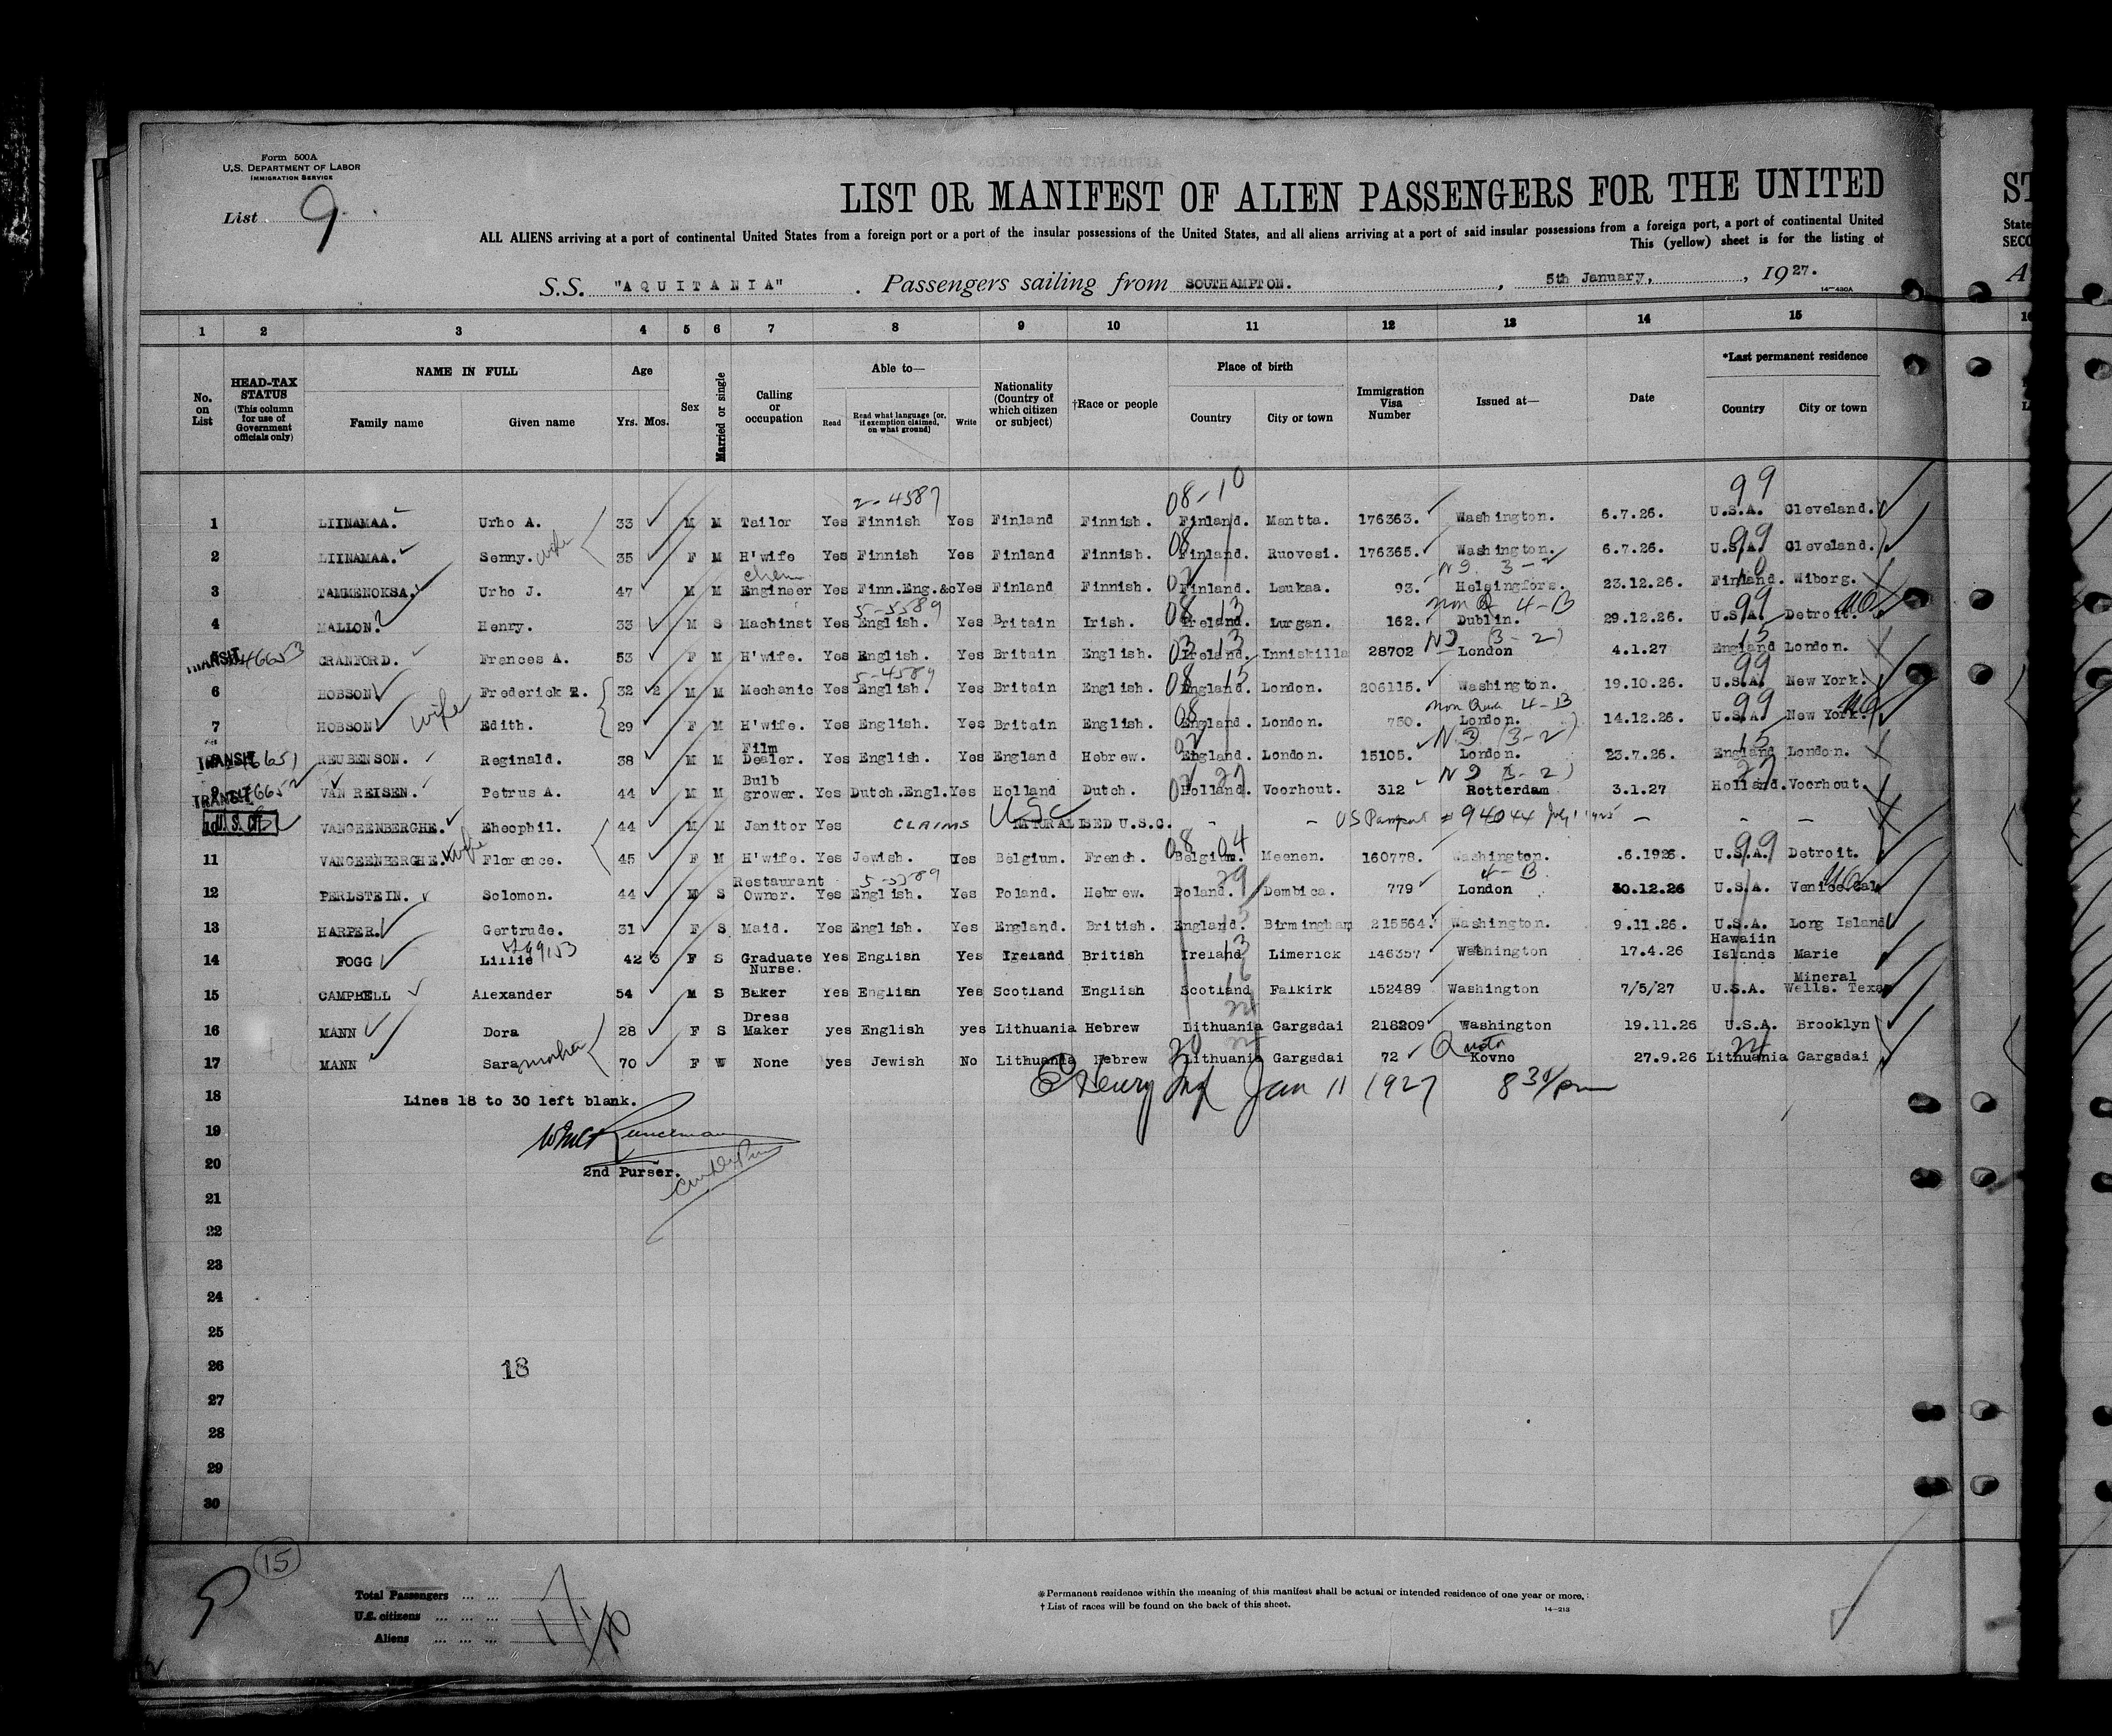 Form 500A
U.S. DEPARTMENT OF LABOR
IMMIGRATION SERVICE
List 9
LIST OR MANIFEST OF ALIEN PASSENGERS FOR THE UNITED
ALL ALIENS arriving at a port of continental United States from a foreign port or a port of the insular possessions of the United States, and all aliens arriving at a port of said insular possessions from a foreign port, a port of continental United
This (yellow) sheet is for the listing of
S.S. "AQUITANIA" . Passengers sailing from SOUTHAMPTON. , 5th January, , 1927.
14—430A
1 2 3 4 5 6 7 8 9 10 11 12 13 14 15
No. on List
HEAD-TAX STATUS (This column for use of Government officials only)
NAME IN FULL Family name Given name
Age Yrs. Mos.
Sex
Married or single
Calling or occupation
Able to— Read Read what language [or, if exemption claimed, on what ground] Write
Nationality (Country of which citizen or subject)
†Race or people
Place of birth Country City or town
Immigration Visa Number
Issued at—
Date
*Last permanent residence Country City or town
2-4587 08-10 99
1 LIINAMAA. Urho A. 33 M M Tailor Yes Finnish Yes Finland Finnish. Finland. Mantta. 176363. Washington. 6.7.26. U.S.A. Cleveland.
2 LIINAMAA. Senny. wife 35 F M H'wife Yes Finnish Yes Finland Finnish. 08 Finland. Ruovesi. 176365. Washington. 6.7.26. U.S.A. 99 Cleveland.
3 TAMMENOKSA. Urho J. 47 M M Engineer Yes Finn.Eng.&c Yes Finland Finnish. Finland. Laukaa. 93. Helsingfors. 23.12.26. Finland. Wiborg.
5-5589 08 13 4-B 99
4 MALLON. Henry. 33 M S Machinst Yes English. Yes Britain Irish. Ireland. Lurgan. 162. Dublin. 29.12.26. U.S.A. Detroit.
TRANSIT 46653 CRANFORD. Frances A. 53 F M H'wife. Yes English. Yes Britain English. Ireland. Inniskilla 28702 London 4.1.27 England London.
5-4589 08 15 99
6 HOBSON Frederick E. 32 2 M M Mechanic Yes English. Yes Britain English. England. London. 206115. Washington. 19.10.26. U.S.A. New York.
7 HOBSON wife Edith. 29 F M H'wife. Yes English. Yes Britain English. 08 England. London. 750. London. 14.12.26. U.S.A. 99 New York.
TRANSIT REUBENSON. Reginald. 38 M M Film Dealer. Yes English. Yes England Hebrew. England. London. 15105. London. 23.7.26. England London.
TRANSIT VAN REISEN. Petrus A. 44 M M Bulb grower. Yes Dutch.Engl. Yes Holland Dutch. Holland. Voorhout. 312 Rotterdam 3.1.27 Holland. Voorhout.
10 VANGEENBERGHE. Eheophil. 44 M M Janitor Yes CLAIMS USC NATURALISED U.S.C. - - US Passport # 94044 July 1 1925 - - -
11 VANGEENBERGHE. wife Florence. 45 F M H'wife. Yes Jewish. Yes Belgium. French. 08 04 Belgium. Meenen. 160778. Washington. .6.1926. U.S.A. 99 Detroit.
5-5589 29 4-B
12 PERLSTEIN. Solomon. 44 M S Restaurant Owner. Yes English. Yes Poland. Hebrew. Poland. Dembica. 779 London 30.12.26 U.S.A. Venice.Cal
13 HARPER. Gertrude. 31 F S Maid. Yes English. Yes England. British. England. Birmingham 215564. Washington. 9.11.26. U.S.A. Long Island
14 FOGG Lillie 42 3 F S Graduate Nurse. Yes English Yes Ireland British Ireland Limerick 146357 Washington 17.4.26 Hawaiin Islands Marie
15 CAMPBELL Alexander 54 M S Baker Yes English Yes Scotland English Scotland Falkirk 152489 Washington 7/5/27 U.S.A. Mineral Wells. Texas
16 MANN Dora 28 F S Dress Maker yes English yes Lithuania Hebrew Lithuania Gargsdai 218209 Washington 19.11.26 U.S.A. Brooklyn
17 MANN Sara mother 70 F W None yes Jewish No Lithuania Hebrew Lithuania Gargsdai 72 Quota Kovno 27.9.26 Lithuania Gargsdai
Jan 11 1927 8 30/pm
18 Lines 18 to 30 left blank.
19
20 2nd Purser.
21
22
23
24
25
26 18
27
28
29
30
15
Total Passengers ... ...
U.S. citizens ... ... ...
Aliens ... ... ...
* Permanent residence within the meaning of this manifest shall be actual or intended residence of one year or more.
† List of races will be found on the back of this sheet.
14—213